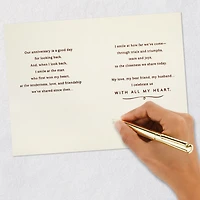 Our anniversary is a good day
for looking back.
And, when I look back,
I smile at the man
who first won my heart,
at the tenderness, love, and friendship
we've shared since then...
I smile at how far we've come—
through trials and triumphs,
tears and joys,
to the closeness we share today.
My love, my best friend, my husband...
I celebrate us
WITH ALL MY HEART.